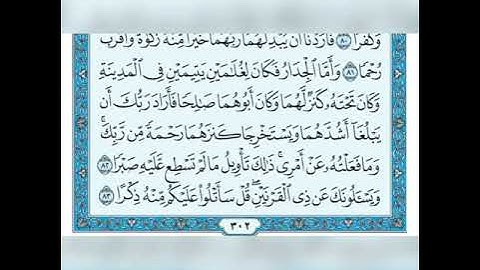 وَكُفْرًا ﴿٨٠﴾ فَأَرَدْنَا أَن يُبْدِلَهُمَا رَبُّهُمَا خَيْرًا مِّنْهُ زَكَوٰةً وَأَقْرَبَ
رُحْمًا ﴿٨١﴾ وَأَمَّا ٱلْجِدَارُ فَكَانَ لِغُلَٰمَيْنِ يَتِيمَيْنِ فِي ٱلْمَدِينَةِ
وَكَانَ تَحْتَهُۥ كَنزٌ لَّهُمَا وَكَانَ أَبُوهُمَا صَٰلِحًا فَأَرَادَ رَبُّكَ أَن
يَبْلُغَآ أَشُدَّهُمَا وَيَسْتَخْرِجَا كَنزَهُمَا رَحْمَةً مِّن رَّبِّكَۚ
وَمَا فَعَلْتُهُۥ عَنْ أَمْرِيۚ ذَٰلِكَ تَأْوِيلُ مَا لَمْ تَسْطِع عَّلَيْهِ صَبْرًا ﴿٨٢﴾
وَيَسْـَٔلُونَكَ عَن ذِي ٱلْقَرْنَيْنِۖ قُلْ سَأَتْلُوا۟ عَلَيْكُم مِّنْهُ ذِكْرًا ﴿٨٣﴾
٣٠٢